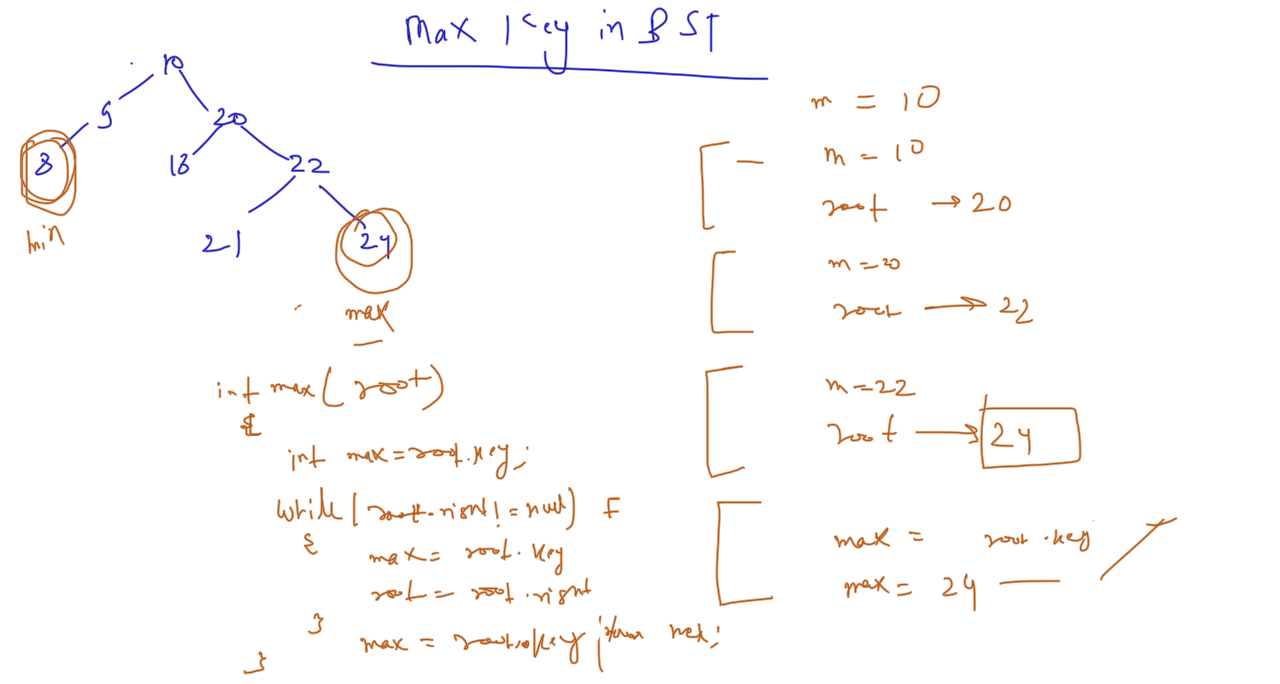 Max Key in BST
10
9
20
8
18
22
21
24
min
max
int max(root)
{
int max=root.key;
while(root.right!=null)
{
max=root.key
root=root.right
}
max=root.key;
}
m = 10
m = 10
root → 20
m = 20
root → 22
m = 22
root → 24
max = root.key
max = 24